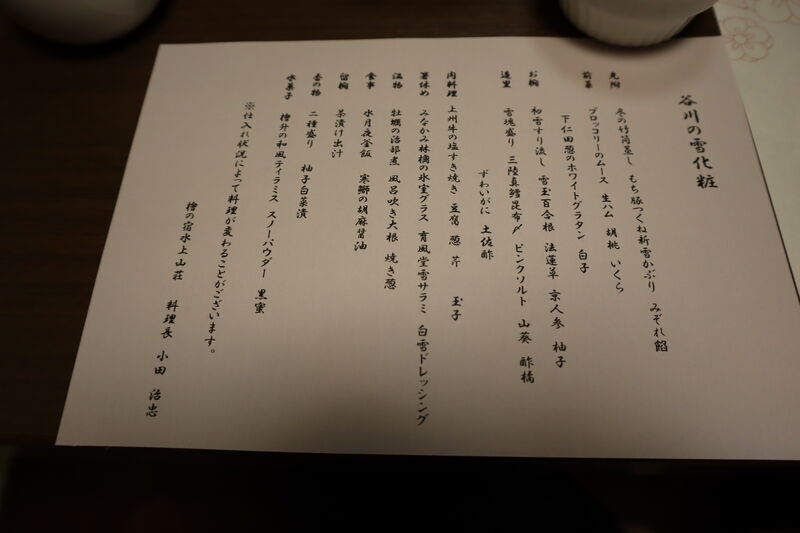 谷川の雪化粧
先附 冬の竹筒蒸し もち豚つくね新雪かぶり みぞれ餡
前菜 ブロッコリーのムース 生ハム 胡桃 いくら
下仁田葱のホワイトグラタン 白子
お椀 初雪すり流し 雪玉百合根 法蓮草 京人参 柚子
造里 雪塊盛り 三陸真鱈昆布〆 ピンクソルト 山葵 酢橘
ずわいがに 土佐酢
肉料理 上州牛の塩すき焼き 豆腐 葱 芹 玉子
箸休め みなかみ林檎の氷室グラス 育風堂雪サラミ 白雪ドレッシング
温物 牡蠣の治部煮 風呂吹き大根 焼き葱
食事 水月夜釜飯 寒鰤の胡麻醤油
留椀 茶漬け出汁
香の物 二種盛り 柚子白菜漬
水菓子 檜升の和風ティラミス スノーパウダー 黒蜜
※仕入れ状況によって料理が変わることがございます。
檜の宿水上山荘 料理長 小田 治忠